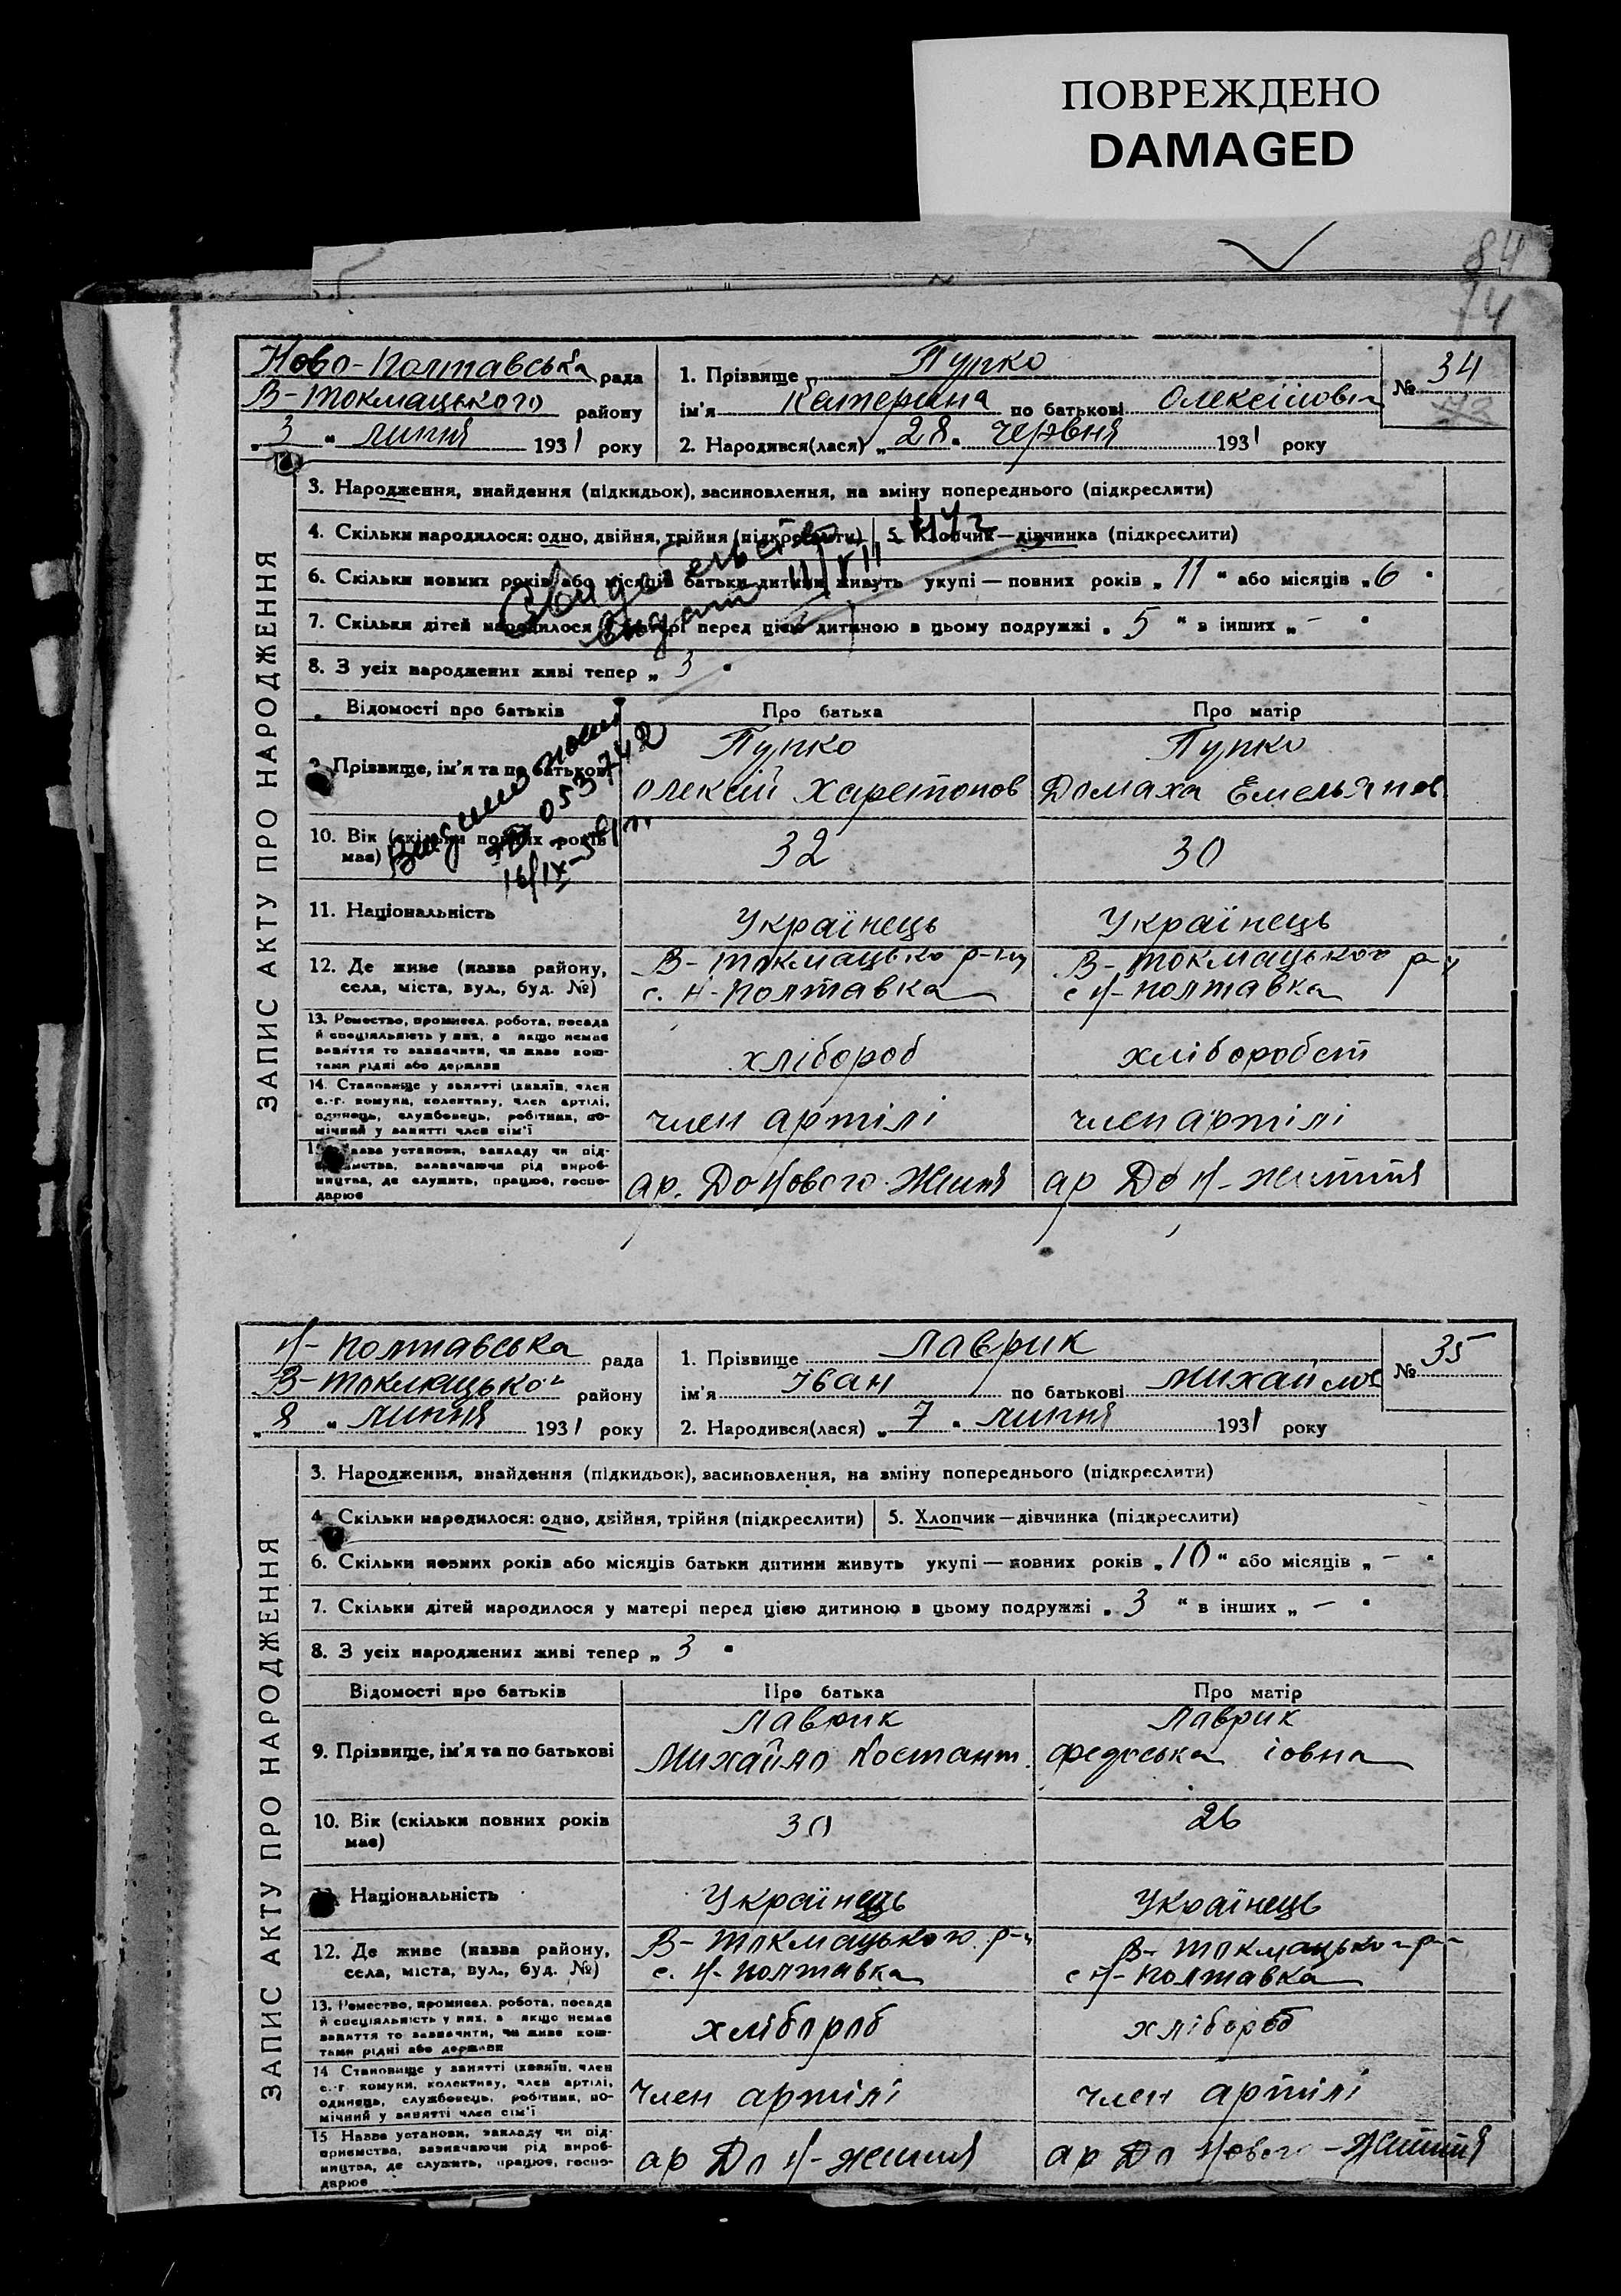 ПОВРЕЖДЕНО
DAMAGED
84
74
ЗАПИС АКТУ ПРО НАРОДЖЕННЯ
Ново-Полтавська рада
В-Токмацького району
„3“ липня 1931 року
1. Прізвище Пупко
ім'я Катерина по батькові Олексіїовна
2. Народився(лася) „28“ червня 1931 року
№ 34
73
3. Народження, знайдення (підкидьок), засиновлення, на зміну попереднього (підкреслити)
4. Скільки народилося: одно, двійня, трійня (підкреслити) 5. Хлопчик—дівчинка (підкреслити)
6. Скільки повних років або місяців батьки дитини живуть укупі — повних років „11“ або місяців „6“
7. Скільки дітей народилося у матері перед цією дитиною в цьому подружжі „5“ в інших „-“
8. З усіх народжених живі тепер „3“
053742
16/IX
Відомості про батьків Про батька Про матір
9. Прізвище, ім'я та по батькові Пупко Пупко
Олексій Харетонов Домаха Емельянов
10. Вік (скільки повних років має) 32 30
11. Національність Українець Українець
12. Де живе (назва району, В-Токмацького р-ну В-Токмацького р-н
села, міста, вул., буд. №) с. Н-Полтавка с Н-Полтавка
13. Ремество, промисел, робота, посада
й спеціяльність у них, а якщо немає
заняття то зазначити, чи живе кош-
тами рідні або держави
хлібороб хлібороб
14. Становище у занятті (хазяїн, член
с.-г. комуни, колективу, член артілі,
одинець, службовець, робітник, по-
мічний у занятті член сім'ї
член артілі член артілі
15. Назва установи, закладу чи під-
приємства, зазначаючи рід вироб-
ництва, де служить, працює, госпо-
дарює
ар. До Нового Життя ар До Н-Життя
ЗАПИС АКТУ ПРО НАРОДЖЕННЯ
Н-Полтавська рада
В-Токмацького району
„8“ липня 1931 року
1. Прізвище Лаврик
ім'я Іван по батькові Михайлов
2. Народився(лася) „7“ липня 1931 року
№ 35
3. Народження, знайдення (підкидьок), засиновлення, на зміну попереднього (підкреслити)
4. Скільки народилося: одно, двійня, трійня (підкреслити) 5. Хлопчик—дівчинка (підкреслити)
6. Скільки повних років або місяців батьки дитини живуть укупі — повних років „10“ або місяців „-“
7. Скільки дітей народилося у матері перед цією дитиною в цьому подружжі „3“ в інших „-“
8. З усіх народжених живі тепер „3“
Відомості про батьків Про батька Про матір
9. Прізвище, ім'я та по батькові Лаврик Лаврик
Михайло Костант. Федоська іовна
10. Вік (скільки повних років має) 30 26
11. Національність Українець Українець
12. Де живе (назва району, В-Токмацького р-н В-Токмацького р-н
села, міста, вул., буд. №) с. Н-Полтавка с Н-Полтавка
13. Ремество, промисел, робота, посада
й спеціяльність у них, а якщо немає
заняття то зазначити, чи живе кош-
тами рідні або держави
хлібороб хлібороб
14 Становище у занятті (хазяїн, член
с.-г. комуни, колективу, член артілі,
одинець, службовець, робітник, по-
мічний у занятті член сім'ї
Член артілі член артілі
15 Назва установи, закладу чи під-
приємства, зазначаючи рід вироб-
ництва, де служить, працює, госпо-
дарює
ар До Н-Життя ар До Нового-Життя